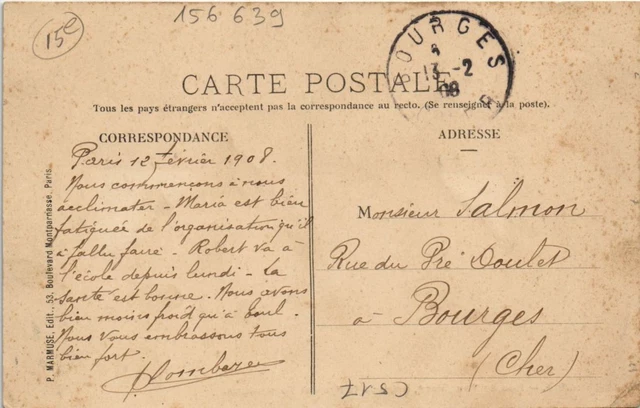 156 639
15€
BOURGES
13-2
08
CARTE POSTALE
Tous les pays étrangers n'acceptent pas la correspondance au recto. (Se renseigner à la poste).
CORRESPONDANCE
Paris 12 février 1908.
Nous commençons à nous
acclimater - Maria est bien
fatiguée de l'organisation qu'il
a fallu faire - Robert va à
l'école depuis lundi - La
santé est bonne. Nous avons
bien moins froid qu'à
Nous vous embrassons tous
bien fort.
P. MARMUSE, Edit., 53, Boulevard Montparnasse, Paris.
ADRESSE
Monsieur Salmon
Rue du Pré Doulet
à Bourges
(Cher)
C517